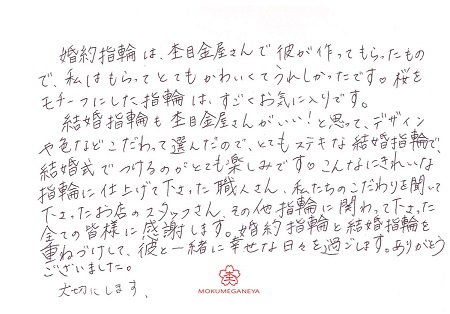 婚約指輪は、杢目金屋さんで彼が作ってもらったもの
で、私はもらってとてもかわいくてうれしかったです♡桜を
モチーフにした指輪は、すごくお気に入りです。
結婚指輪も杢目金屋さんがいい！と思って、デザイン
や色などこだわって選んだので、とてもステキな結婚指輪で、
結婚式でつけるのがとても楽しみです♡こんなにきれいな
指輪に仕上げて下さった職人さん、私たちのこだわりを聞いて
下さったお店のスタッフさん、その他指輪に関わって下さった
全ての皆様に感謝します。婚約指輪と結婚指輪を
重ねづけして、彼と一緒に幸せな日々を過ごします。ありがとう
ございました。
大切にします、
MOKUMEGANEYA